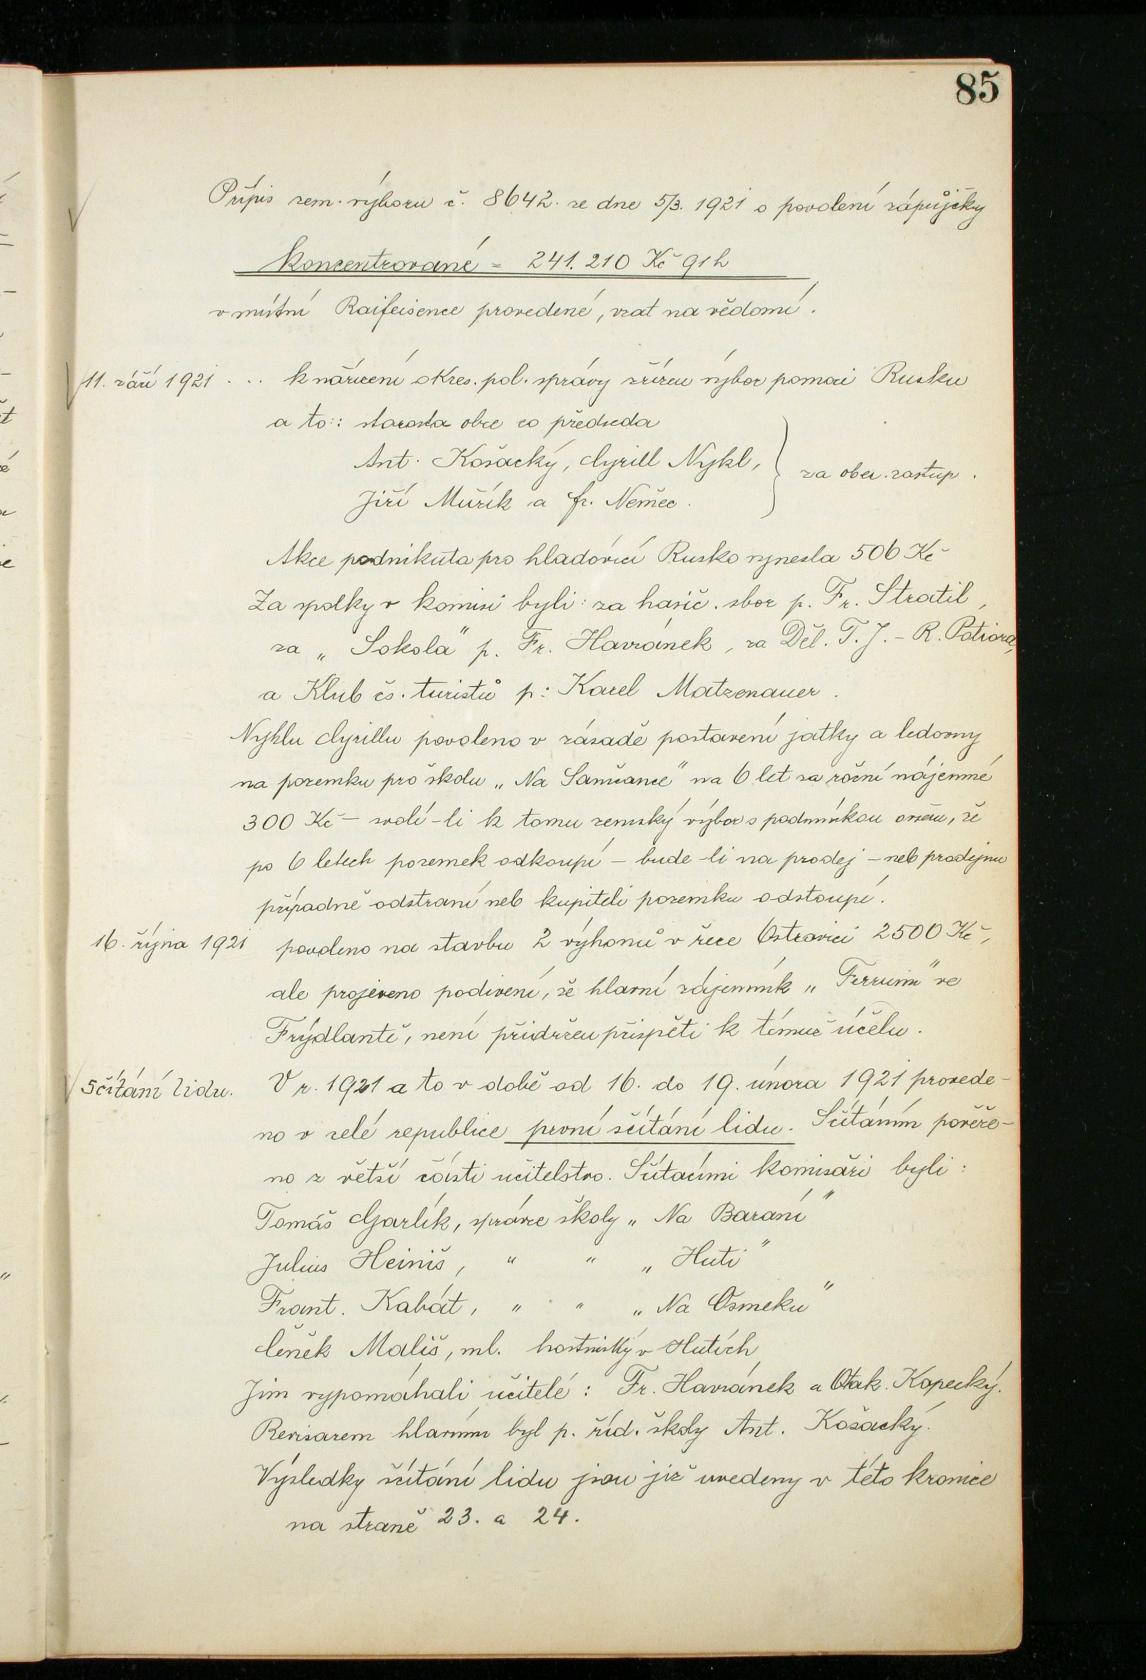 85
Přípis zem. výboru č. 8642. ze dne 5/3. 1921 o povolení zápůjčky
koncentrované = 241.210 Kč 91h
v místní Raifeisence provedené, vzat na vědomí.
11. září 1921 ... k nařízení okres. pol. správy zřízen výbor pomoci Rusku
a to: starosta obce co předseda
Ant. Košacký, Cyrill Nykl,
Jiří Muřík a Fr. Němec.
za obec. zastup.
Akce podniknuta pro hladovící Rusko vynesla 506 Kč
Za spolky v komisi byli: za hasič. sbor p. Fr. Stratil,
za „Sokola" p. Fr. Havránek, za Děl. T. J. - R. Potiora,
a Klub čs. turistů p: Karel Matzenauer.
Nyklu Cyrillu povoleno v zásadě postavení jatky a ledovny
na pozemku pro školu „Na Samčance" na 6 let za roční nájemné
300 Kč — svolí-li k tomu zemský výbor s podmínkou ovšem, že
po 6 letech pozemek odkoupí — bude-li na prodej — neb prodejnu
případně odstraní neb kupiteli pozemku odstoupí.
16. října 1921 povoleno na stavbu 2 výhonů v řece Ostravici 2500 Kč,
ale projeveno podivení, že hlavní zájemník „Ferrum" ve
Frýdlantě, není přidržen přispěti k témuž účelu.
Sčítání lidu. V r. 1921 a to v době od 16. do 19. února 1921 provede-
no v celé republice první sčítání lidu. Sčítáním pověře-
no z větší části učitelstvo. Sčítacími komisaři byli:
Tomáš Garlík, správce školy „Na Baraní"
Julius Heiniš, " " „Huti"
Frant. Kabát, " " „Na Osmeku"
Čeněk Mališ, ml. hostinský v Hutích
Jim vypomáhali učitelé: Fr. Havránek a Otak. Kopecký.
Revisorem hlavním byl p. říd. školy Ant. Košacký.
Výsledky sčítání lidu jsou již uvedeny v této kronice
na straně 23. a 24.